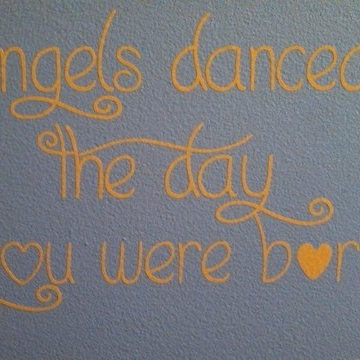 ngels danced
the day
you were born